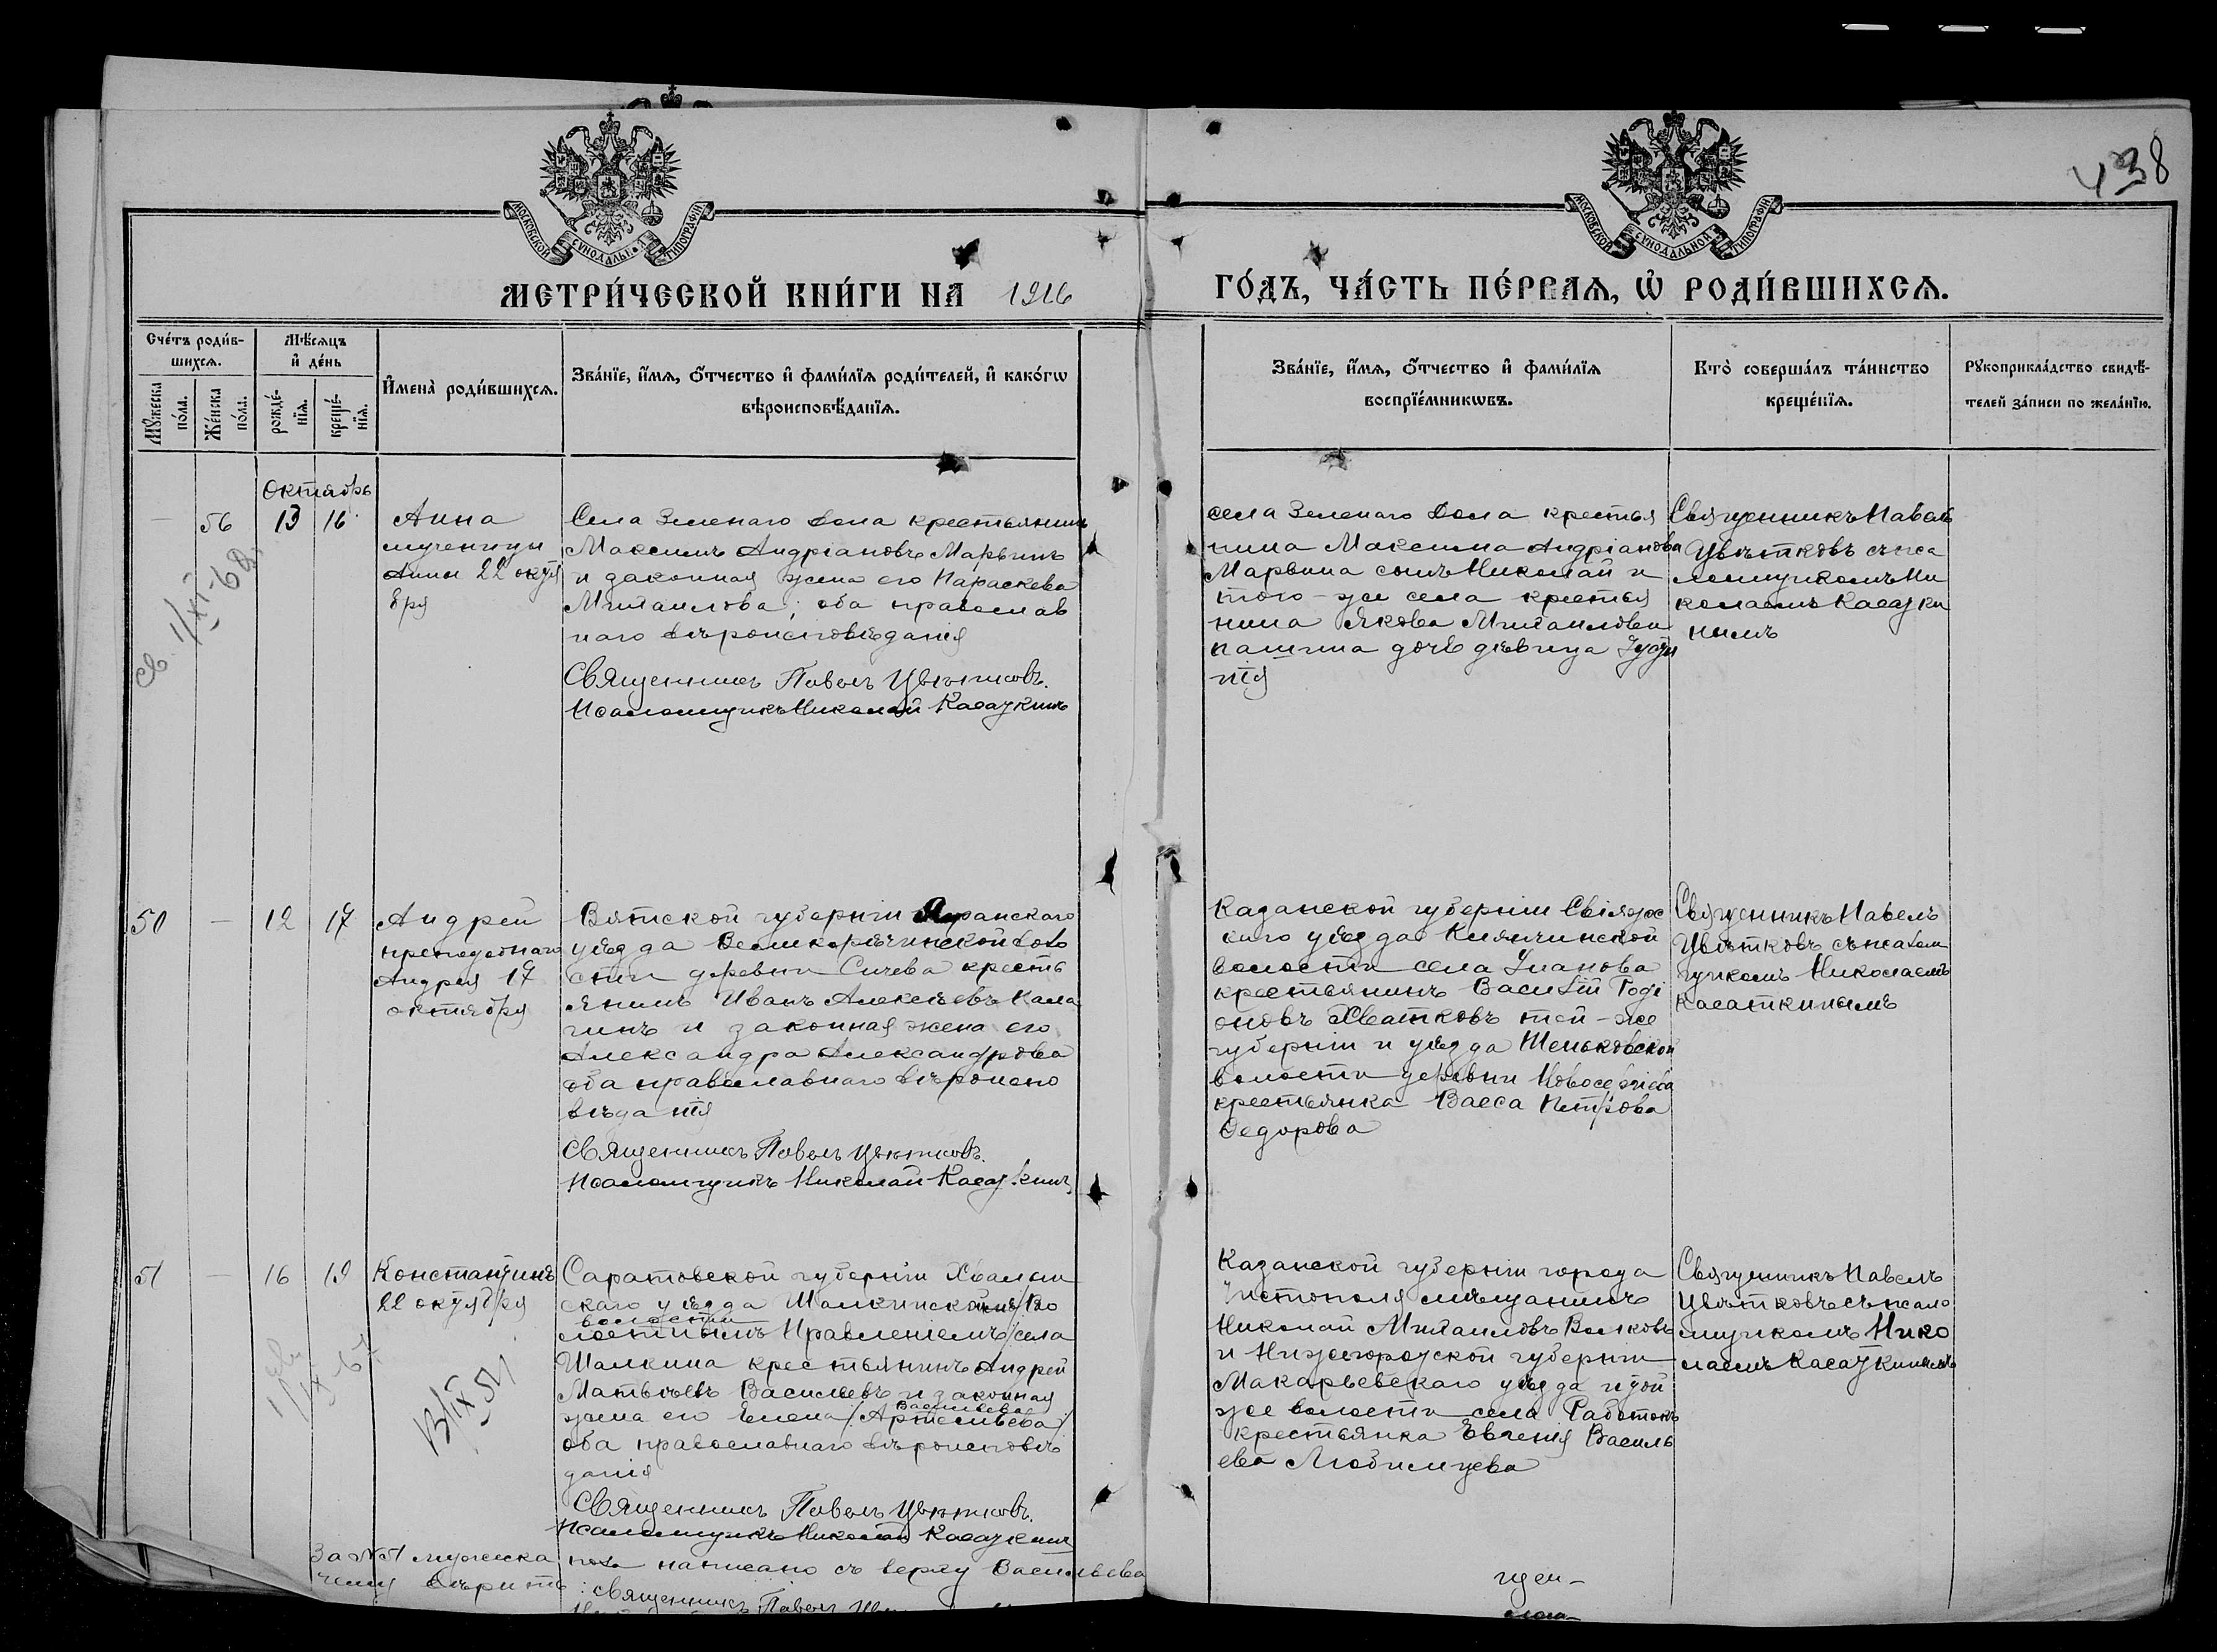 438
МОСКОВСКОЙ СУНОДАЛЬНОЙ ТИПОГРАФІИ
МОСКОВСКОЙ СУНОДАЛЬНОЙ ТИПОГРАФІИ
МЕТРИ́ЧЕСКОЙ КНИ́ГИ НА 1916 ГО́ДЪ, ЧА́СТЬ ПЕ́РВАѦ, Ѡ РОДИ́ВШИХСѦ.
Сче́тъ роди́в-
шихсѧ.
Мꙋжеска по́ла.
Же́нска по́ла.
Мѣ́сѧцъ
и҆ де́нь
рожде́-
нїѧ.
креще́-
нїѧ.
И҆мена̀ роди́вшихсѧ.
Зва́нїе, и҆́мѧ, ѻ҆́тчество и҆ фами́лїѧ роди́телей, и҆ како́гѡ
вѣроисповѣ́данїѧ.
Зва́нїе, и҆́мѧ, ѻ҆́тчество и҆ фами́лїѧ
воспрїе́мникѡвъ.
Кто̀ соверша́лъ та́инство
креще́нїѧ.
Рꙋкоприкла́дство свидѣ́-
телей за́писи по жела́нїю.
Октябрь
— 56 13 16
Анна
мученицы
Анны 22 октя
бря
Села Зеленаго Дола крестьянинъ
Максимъ Андріановъ Марьинъ
и законная жена его Параскева
Михаилова; оба православ
наго вѣроисповѣданія
Священникъ Павелъ Цвѣтковъ.
Псаломщикъ Николай Касаткинъ
села Зеленаго Дола крестья
нина Максима Андріанова
Марьина сынъ Николай и
того-же села крестья
нина Якова Михаилова
дочь дѣвица
Священникъ Павелъ
Цвѣтковъ съ пса
ломщикомъ Ни
колаемъ Касатки
нымъ
50 — 12 17
Андрей
преподобнаго
Андрея 17
октября
Вятской губерніи Яранскаго
уѣзда Великорѣчинской воло
сти деревни Сичева кресть
янинъ Иванъ Алексѣевъ Кала
гинъ и законная жена его
Александра Александрова
оба православнаго вѣроиспо
вѣданія
Священникъ Павелъ Цвѣтковъ.
Псаломщикъ Николай Касаткинъ
Казанской губерніи Свіяжс
каго уѣзда
волости села Уланова
крестьянинъ Василій Роді
оновъ Хватковъ той-же
губерніи и уѣзда Шеньковской
волости деревни
крестьянка Васса Петрова
Федорова
Священникъ Павелъ
Цвѣтковъ съ псалом
щикомъ Николаемъ
Касаткинымъ
51 — 16 19
Константинъ
22 октября
13/IX 51
Саратовской губерніи Хвалын
скаго уѣзда Шалкинской Во
волости
лостнымъ Правленіемъ/села
Шалкина крестьянинъ Андрей
Матвѣевъ Васильевъ и законная
Васильева
жена его Елена/Артемьева/
оба православнаго вѣроисповѣ
данія
Священникъ Павелъ Цвѣтковъ.
Псаломщикъ Николай Касаткинъ
Казанской губерніи города
Чистополя мѣщанинъ
Николай Михаиловъ Волковъ
и Нижегородской губерніи
Макарьевскаго уѣзда и той
же волости села Работокъ
крестьянка Евгенія Василь
ева Любимцева
Священникъ Павелъ
Цвѣтковъ съ псало
мщикомъ Нико
лаемъ Касаткинымъ
За №51 мужска пола написано съ верху Васильева
чему вѣрить: священникъ Павелъ